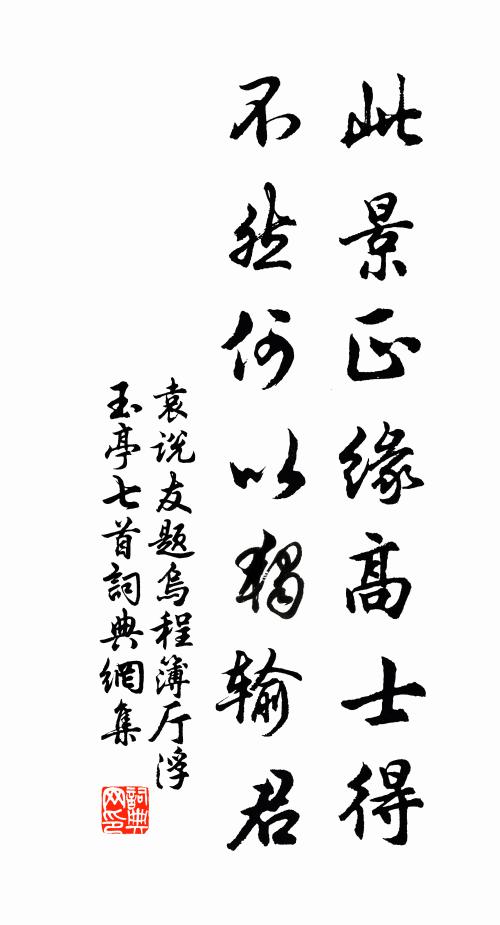 此景正缘高士得
不然何以独输君
袁说友题乌程簿厅浮
玉亭七首詞典網集
詞典
网印